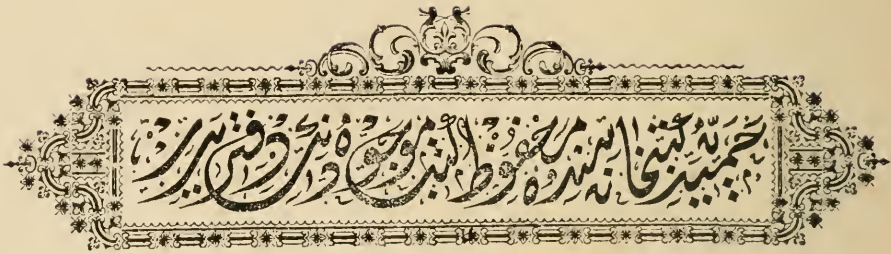 حمیدیه كتبخانه سنده محفوظ كتب موجوده نك دفتریدر